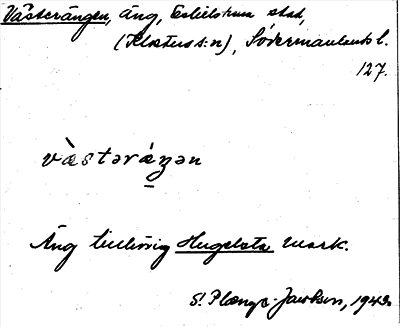 Västerängen, äng, Eskilstuna stad,
(Klosters s:n), Södermanlands l.
127.
vàstəráŋən
Äng tillhörig Hugelsta mark.
S. Plænge-Jacobson, 1943.